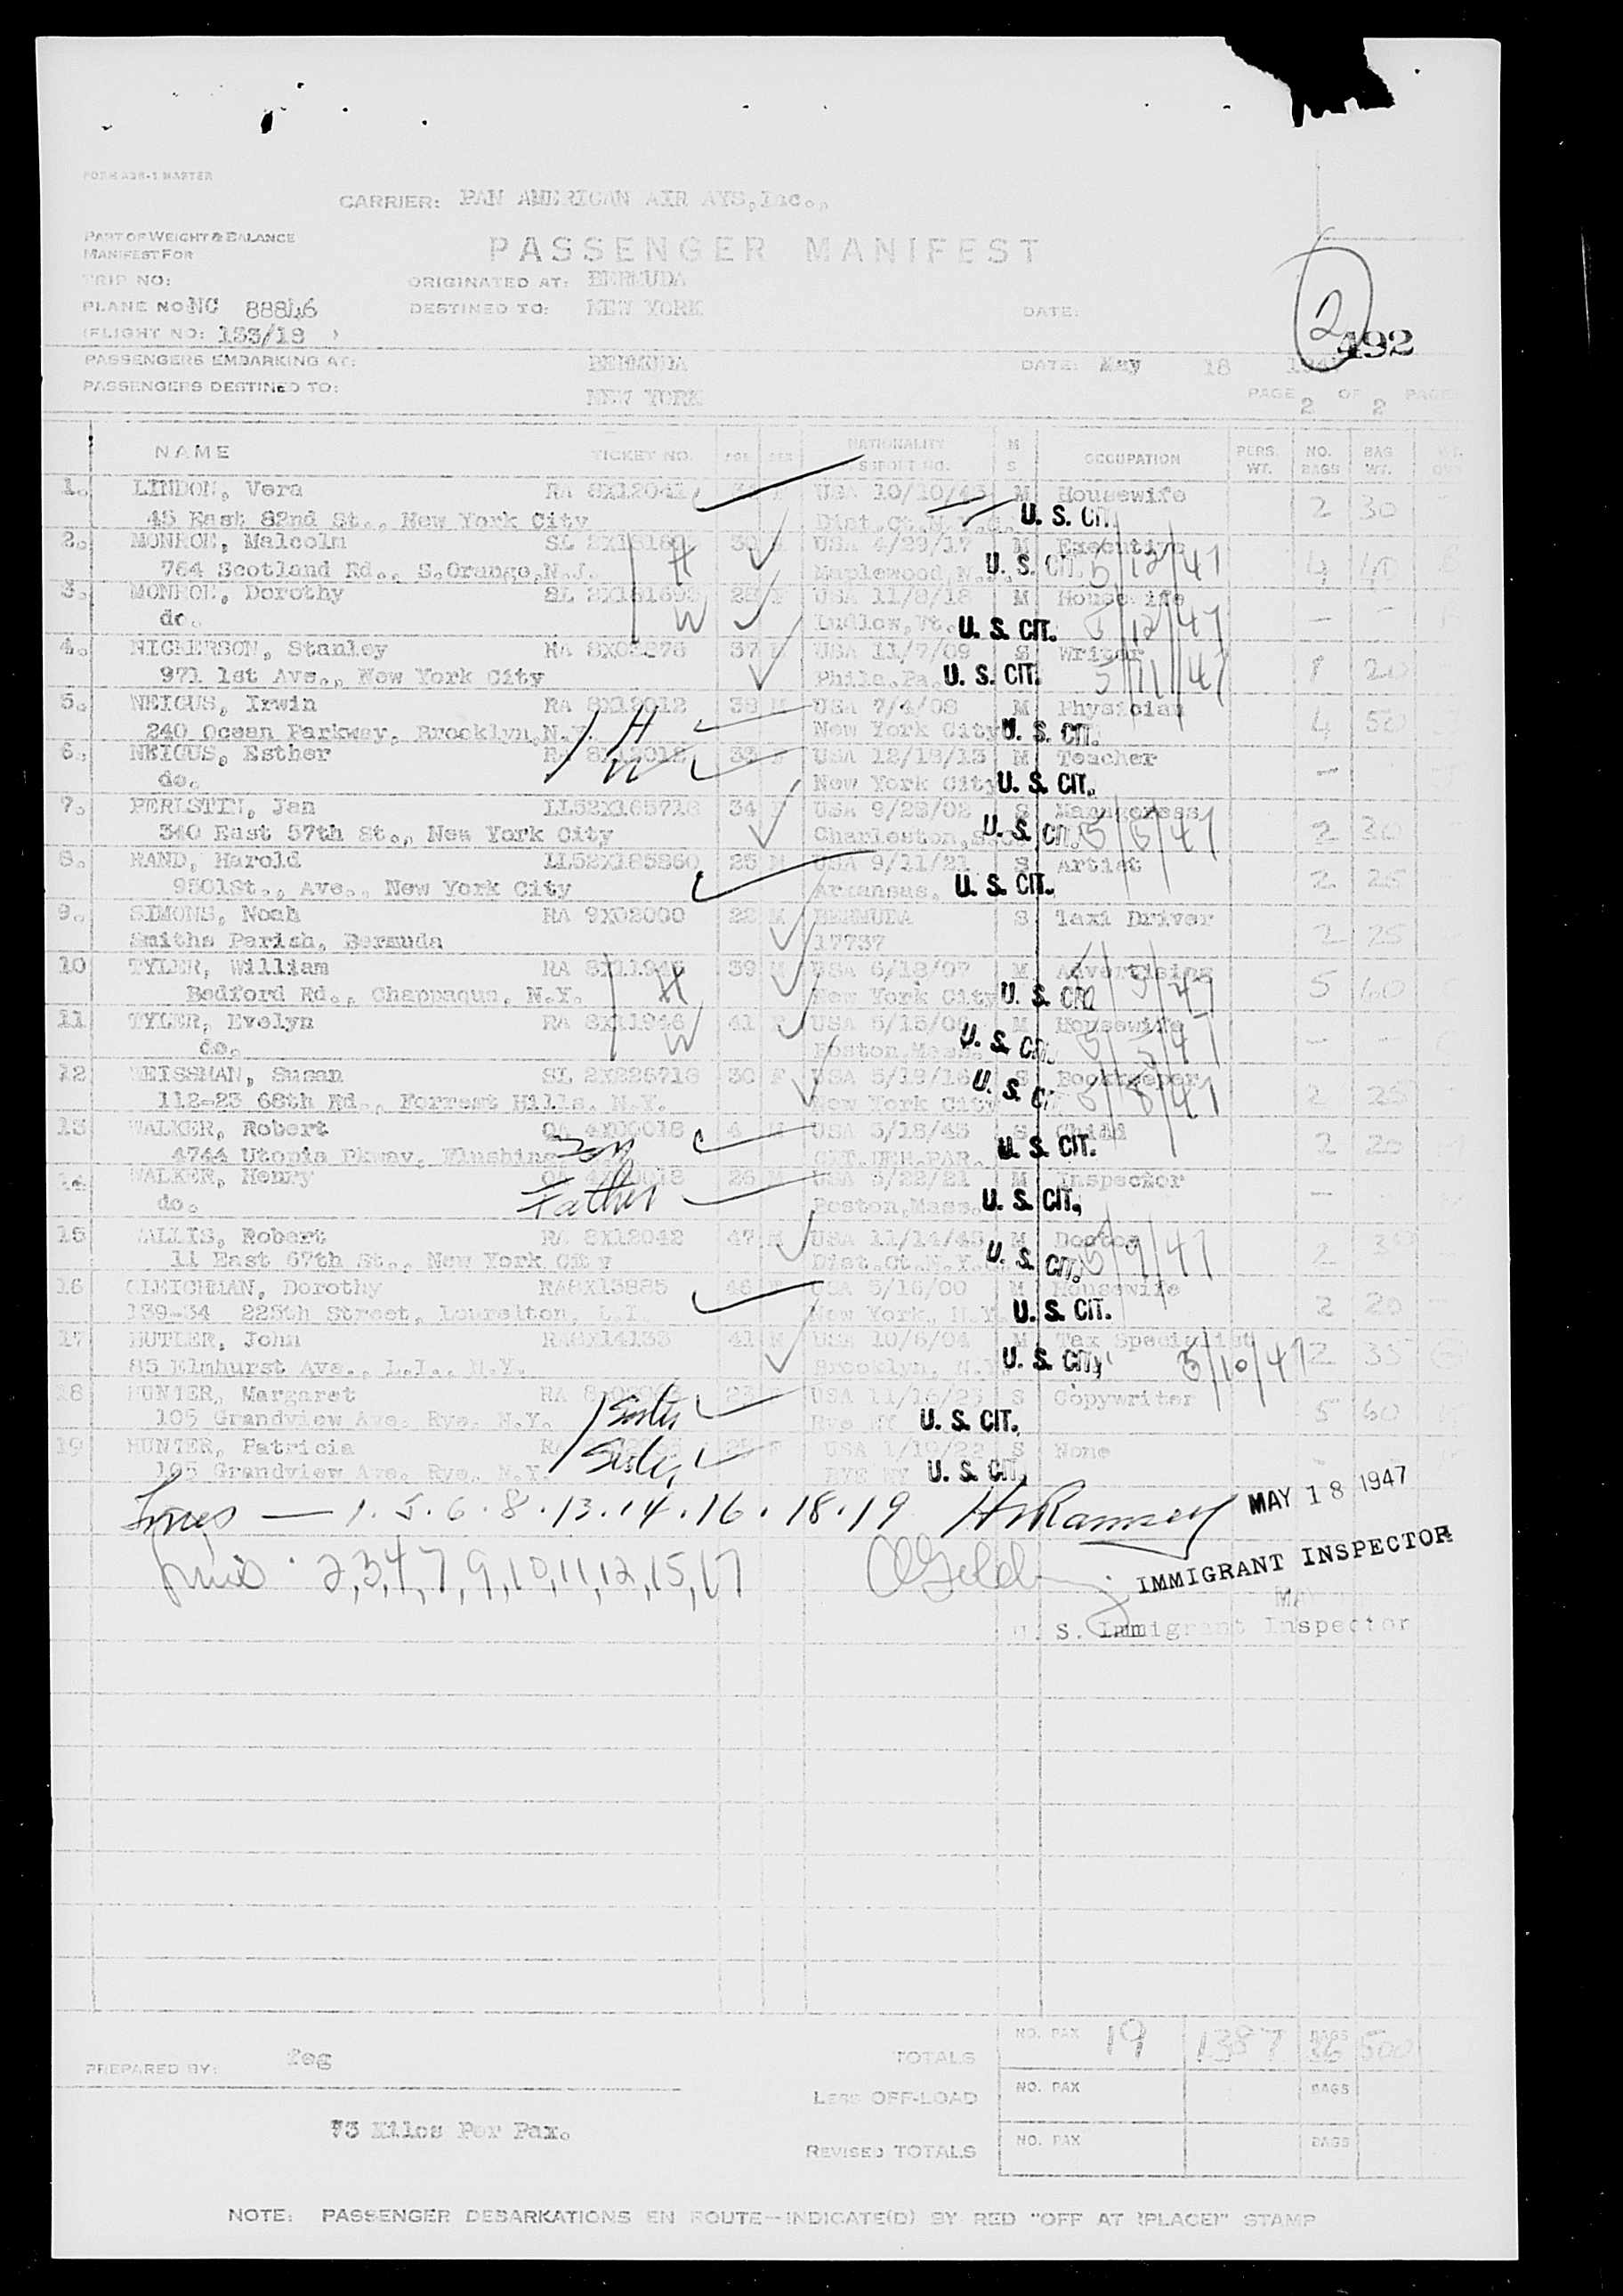 FORM A28-1 MASTER
CARRIER: PAN AMERICAN AIR AYS, Inc.,
PART OF WEIGHT & BALANCE
MANIFEST FOR
PASSENGER MANIFEST
TRIP NO: ORIGINATED AT: BERMUDA
PLANE NO NC 88846 DESTINED TO: NEW YORK DATE:
(FLIGHT NO: 133/18 )
2 492
PASSENGERS EMBARKING AT: BERMUDA DATE: May 18
PASSENGERS DESTINED TO: NEW YORK PAGE 2 OF 2 PAGE
NAME TICKET NO. AGE SEX NATIONALITY M S OCCUPATION PERS. WT. NO. BAGS BAG WT.
1. LINDON, Vera RA 8X12041 F USA 10/10/43 M Housewife 2 30
45 East 82nd St., New York City Dist.Ct. U. S. CIT.
2. MONROE, Malcolm SL 30 USA 4/29/17 M Executive
764 Scotland Rd., S.Orange,N.J. H Maplewood,N.J. U. S. CIT. 5/12/47 4 40
3. MONROE, Dorothy SL 28 F USA 11/8/18 M Housewife
do. W Ludlow,Vt. U. S. CIT. 5/12/47 —
4. NICKERSON, Stanley 37 USA 11/7/09 S Writer
971 1st Ave., New York City Phila.Pa. U. S. CIT. 5/11/47 1 20
5. NEIGUS, Irwin RA 8X12012 38 M USA 7/4/08 M Physician
240 Ocean Parkway, Brooklyn,N.Y. H New York City U. S. CIT. 4 50
6. NEIGUS, Esther RA 8X12012 33 F USA 12/18/13 M Teacher
do. W New York City U. S. CIT. —
7. PERLSTIN, Jan LL52X165716 34 USA 9/23/02 S Manageress
340 East 57th St., New York City Charleston,S.C. U. S. CIT. 5/6/47 2 30
8. RAND, Harold LL52X185860 25 M USA 9/11/21 S Artist
9501St., Ave., New York City Arkansas. U. S. CIT. 2 25
9. SIMONS, Noah RA 9X02000 22 M BERMUDA S Taxi Driver
Smiths Parish, Bermuda 17737 2 25
10 TYLER, William RA 8X11946 39 M USA 6/18/07 M Advertising
Bedford Rd., Chappaqua, N.Y. H New York City U. S. CIT. 5 60
11 TYLER, Evelyn RA 8X11946 41 F USA M Housewife
do. W Boston,Mass. U. S. CIT. — —
12 WEISSMAN, Susan SL 2X226718 30 F USA 5/19/16 S Bookkeeper
112-23 68th Rd., Forrest Hills, N.Y. New York City U. S. CIT. 5/8/47 2 25
13 WALKER, Robert 4 M USA 3/18/43 S Child
4744 Utopia Pkway, Flushing Son U. S. CIT. 2 20
14 WALKER, Henry 26 M USA 3/22/21 M Inspector
do. Father Boston,Mass. U. S. CIT. —
15 WALLIS, Robert RA 8X12042 47 M USA 11/14/43 M Doctor
11 East 67th St., New York City Dist.Ct.N.Y. U. S. CIT. 5/9/47 2
16 GLEICHMAN, Dorothy RA8X13885 46 F USA 5/16/00 M Housewife
139-34 225th Street, Laurelton, L.I. New York, N.Y. U. S. CIT. 2 20
17 BUTLER, John RA8X14133 41 M USA 10/6/04 M Tax Specialist
85 Elmhurst Ave., L.I., N.Y. Brooklyn, N.Y. U. S. CIT. 5/10/47 2 35
18 HUNTER, Margaret RA 23 USA 11/16/23 S Copywriter
105 Grandview Ave. Rye, N.Y. Sister Rye NY U. S. CIT. 5 60
19 HUNTER, Patricia USA 1/19/22 S None
105 Grandview Ave. Rye, N.Y. Sister RYE NY U. S. CIT.
— 1. 5. 6. 8. 13. 14. 16. 18. 19 HRamsey MAY 18 1947
2,3,4,7,9,10,11,12,15,17 IMMIGRANT INSPECTOR
U. S. Immigrant Inspector
PREPARED BY: feg TOTALS NO. PAX 19 1387 BAGS 36 500
LESS OFF-LOAD NO. PAX BAGS
73 Kilos Per Pax. REVISED TOTALS NO. PAX BAGS
NOTE: PASSENGER DEBARKATIONS EN ROUTE—INDICATE(D) BY RED "OFF AT (PLACE)" STAMP